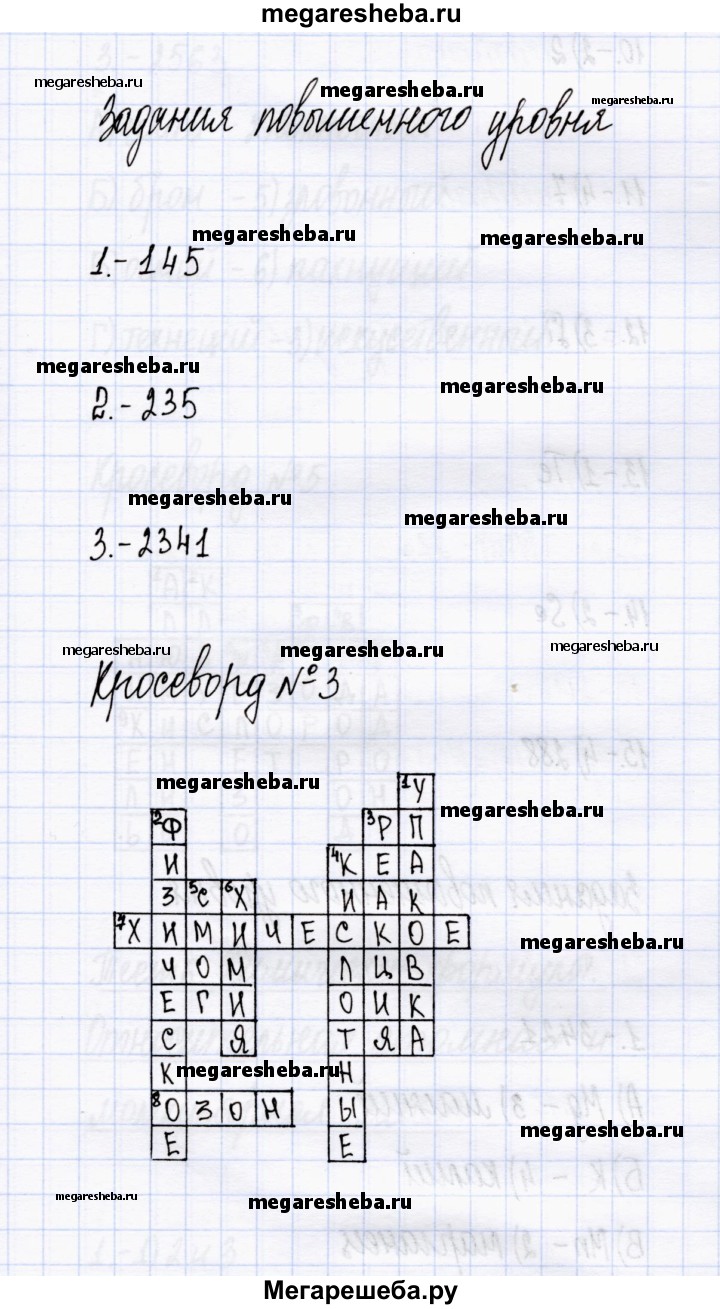 megaresheba.ru
megaresheba.ru
megaresheba.ru
megaresheba.ru
Задания повышенного уровня
megaresheba.ru
megaresheba.ru
1.-145
megaresheba.ru
megaresheba.ru
2.-235
megaresheba.ru
megaresheba.ru
3.-2341
megaresheba.ru
megaresheba.ru
megaresheba.ru
Кросворд №3
megaresheba.ru
1У
megaresheba.ru
2Ф 3Р П
И 4К Е А
З 5С 6Х И А К
7Х И М И Ч Е С К О Е
megaresheba.ru
Ч О М Л Ц В
Е Г И О И К
С Я Т Я А
К Н
megaresheba.ru
8О З О Н Ы
megaresheba.ru
Е Е
megaresheba.ru
megaresheba.ru
Мегарешеба.ру